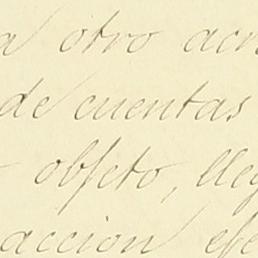 a otro acr
de cuentas
objeto, lleg
accion efe